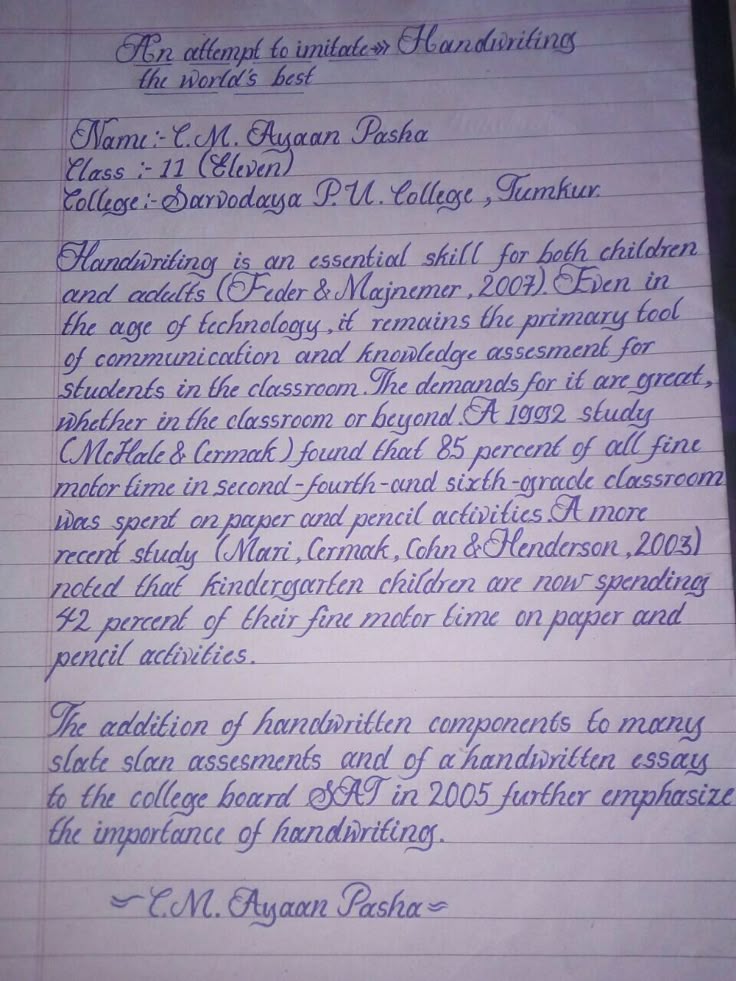 An attempt to imitate»» Handwriting
the world's best
Name:- C.M. Ayaan Pasha
Class :- 11 (Eleven)
College:- Sarvodaya P.U. College, Tumkur.
Handwriting is an essential skill for both children
and adults (Feder & Majnemer, 2007). Even in
the age of technology, it remains the primary tool
of communication and knowledge assesment for
students in the classroom. The demands for it are great,
whether in the classroom or beyond. A 1992 study
(McHale & Cermak) found that 85 percent of all fine
motor time in second-fourth-and sixth-grade classroom
was spent on paper and pencil activities. A more
recent study (Mari, Cermak, Cohn & Henderson, 2003)
noted that kindergarten children are now spending
42 percent of their fine motor time on paper and
pencil activities.
The addition of handwritten components to many
slate slan assesments and of a handwritten essay
to the college board SAT in 2005 further emphasize
the importance of handwriting.
~C.M. Ayaan Pasha~